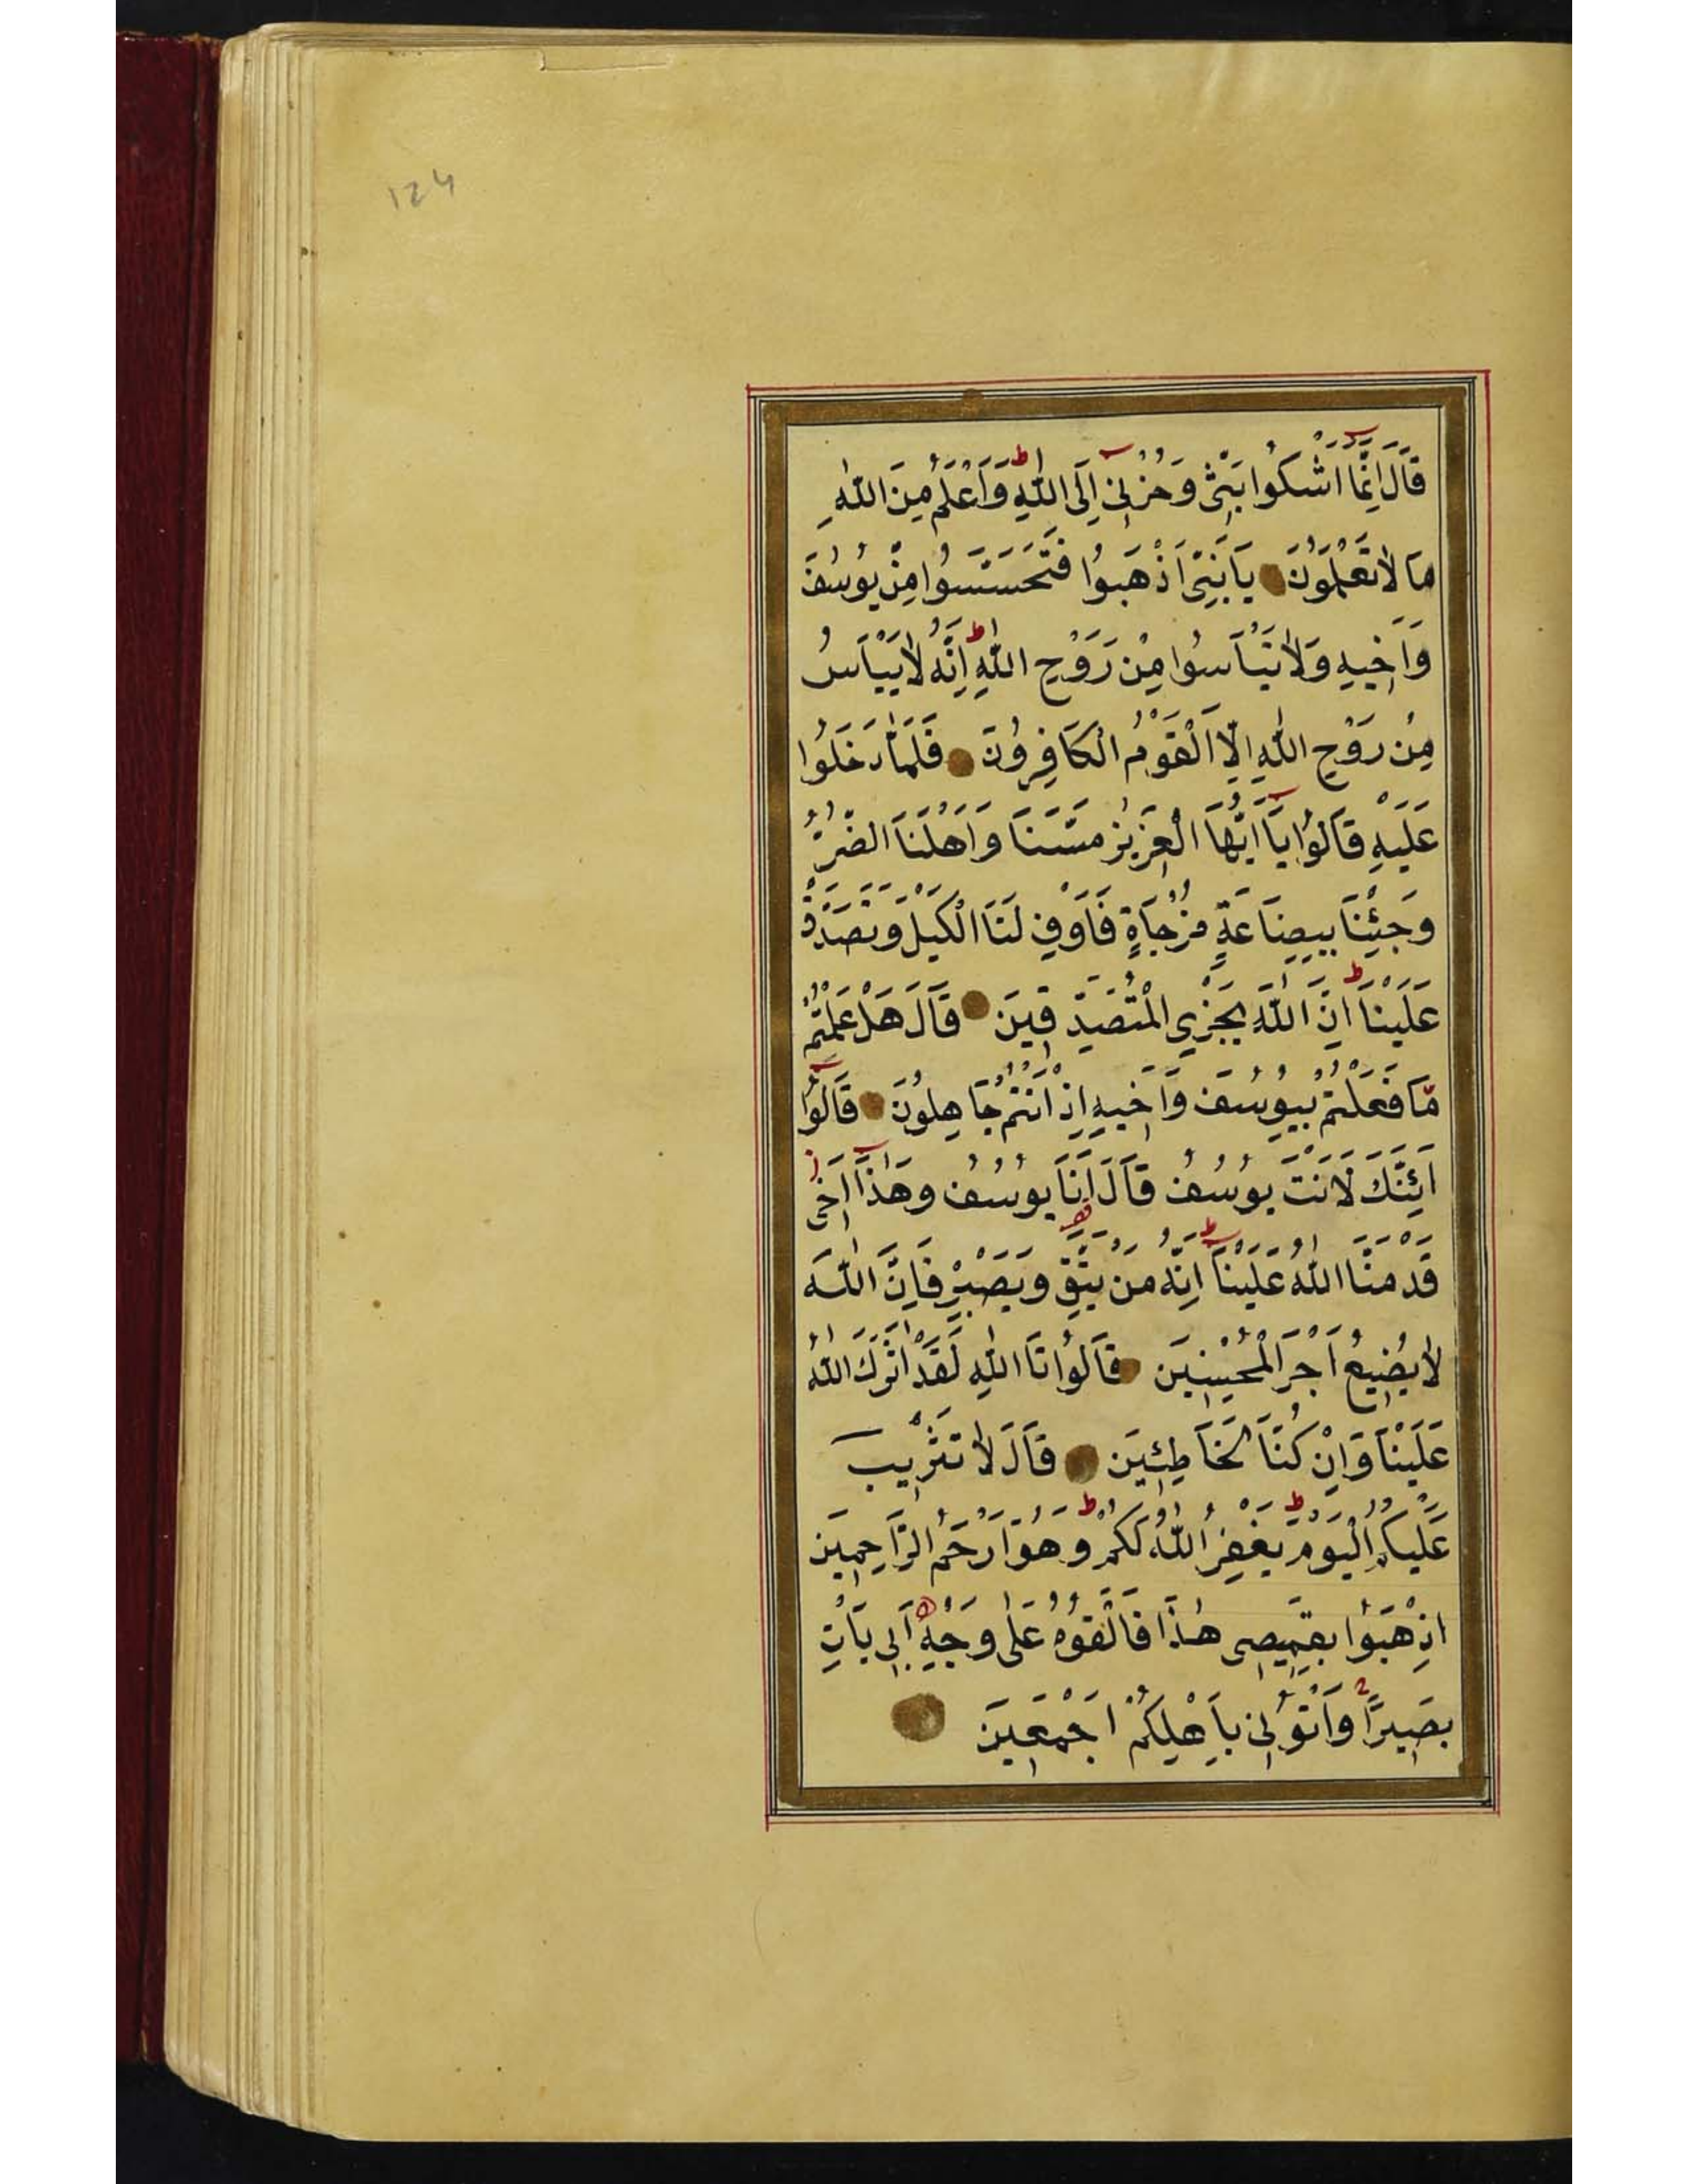 124
قَالَ اِنَّمَٓا اَشْكُوا بَثّ۪ي وَحُزْن۪ٓي اِلَى اللّٰهِ وَاَعْلَمُ مِنَ اللّٰهِ
مَا لَا تَعْلَمُونَ يَا بَنِيَّ اذْهَبُوا فَتَحَسَّسُوا مِنْ يُوسُفَ
وَاَخ۪يهِ وَلَا تَيْاَسُوا مِنْ رَوْحِ اللّٰهِ اِنَّهُ لَا يَيْاَسُ
مِنْ رَوْحِ اللّٰهِ اِلَّا الْقَوْمُ الْكَافِرُونَ فَلَمَّا دَخَلُوا
عَلَيْهِ قَالُوا يَٓا اَيُّهَا الْعَز۪يزُ مَسَّنَا وَاَهْلَنَا الضُّرُّ
وَجِئْنَا بِبِضَاعَةٍ مُزْجَاةٍ فَاَوْفِ لَنَا الْكَيْلَ وَتَصَدَّقْ
عَلَيْنَا اِنَّ اللّٰهَ يَجْزِي الْمُتَصَدِّق۪ينَ قَالَ هَلْ عَلِمْتُمْ
مَا فَعَلْتُمْ بِيُوسُفَ وَاَخ۪يهِ اِذْ اَنْتُمْ جَاهِلُونَ قَالُٓوا
اَئِنَّكَ لَاَنْتَ يُوسُفُ قَالَ اَنَا يُوسُفُ وَهٰذَٓا اَخ۪ي
قَدْ مَنَّ اللّٰهُ عَلَيْنَا اِنَّهُ مَنْ يَتَّقِ وَيَصْبِرْ فَاِنَّ اللّٰهَ
لَا يُض۪يعُ اَجْرَ الْمُحْسِن۪ينَ قَالُوا تَا اللّٰهِ لَقَدْ اٰثَرَكَ اللّٰهُ
عَلَيْنَا وَاِنْ كُنَّا لَخَاطِـ۪ٔينَ قَالَ لَا تَثْر۪يبَ
عَلَيْكُمُ الْيَوْمَ يَغْفِرُ اللّٰهُ لَكُمْ وَهُوَ اَرْحَمُ الرَّاحِم۪ينَ
اِذْهَبُوا بِقَم۪يص۪ي هٰذَا فَاَلْقُوهُ عَلٰى وَجْهِ اَب۪ي يَأْتِ
بَص۪يرًا وَأْتُون۪ي بِاَهْلِكُمْ اَجْمَع۪ينَ